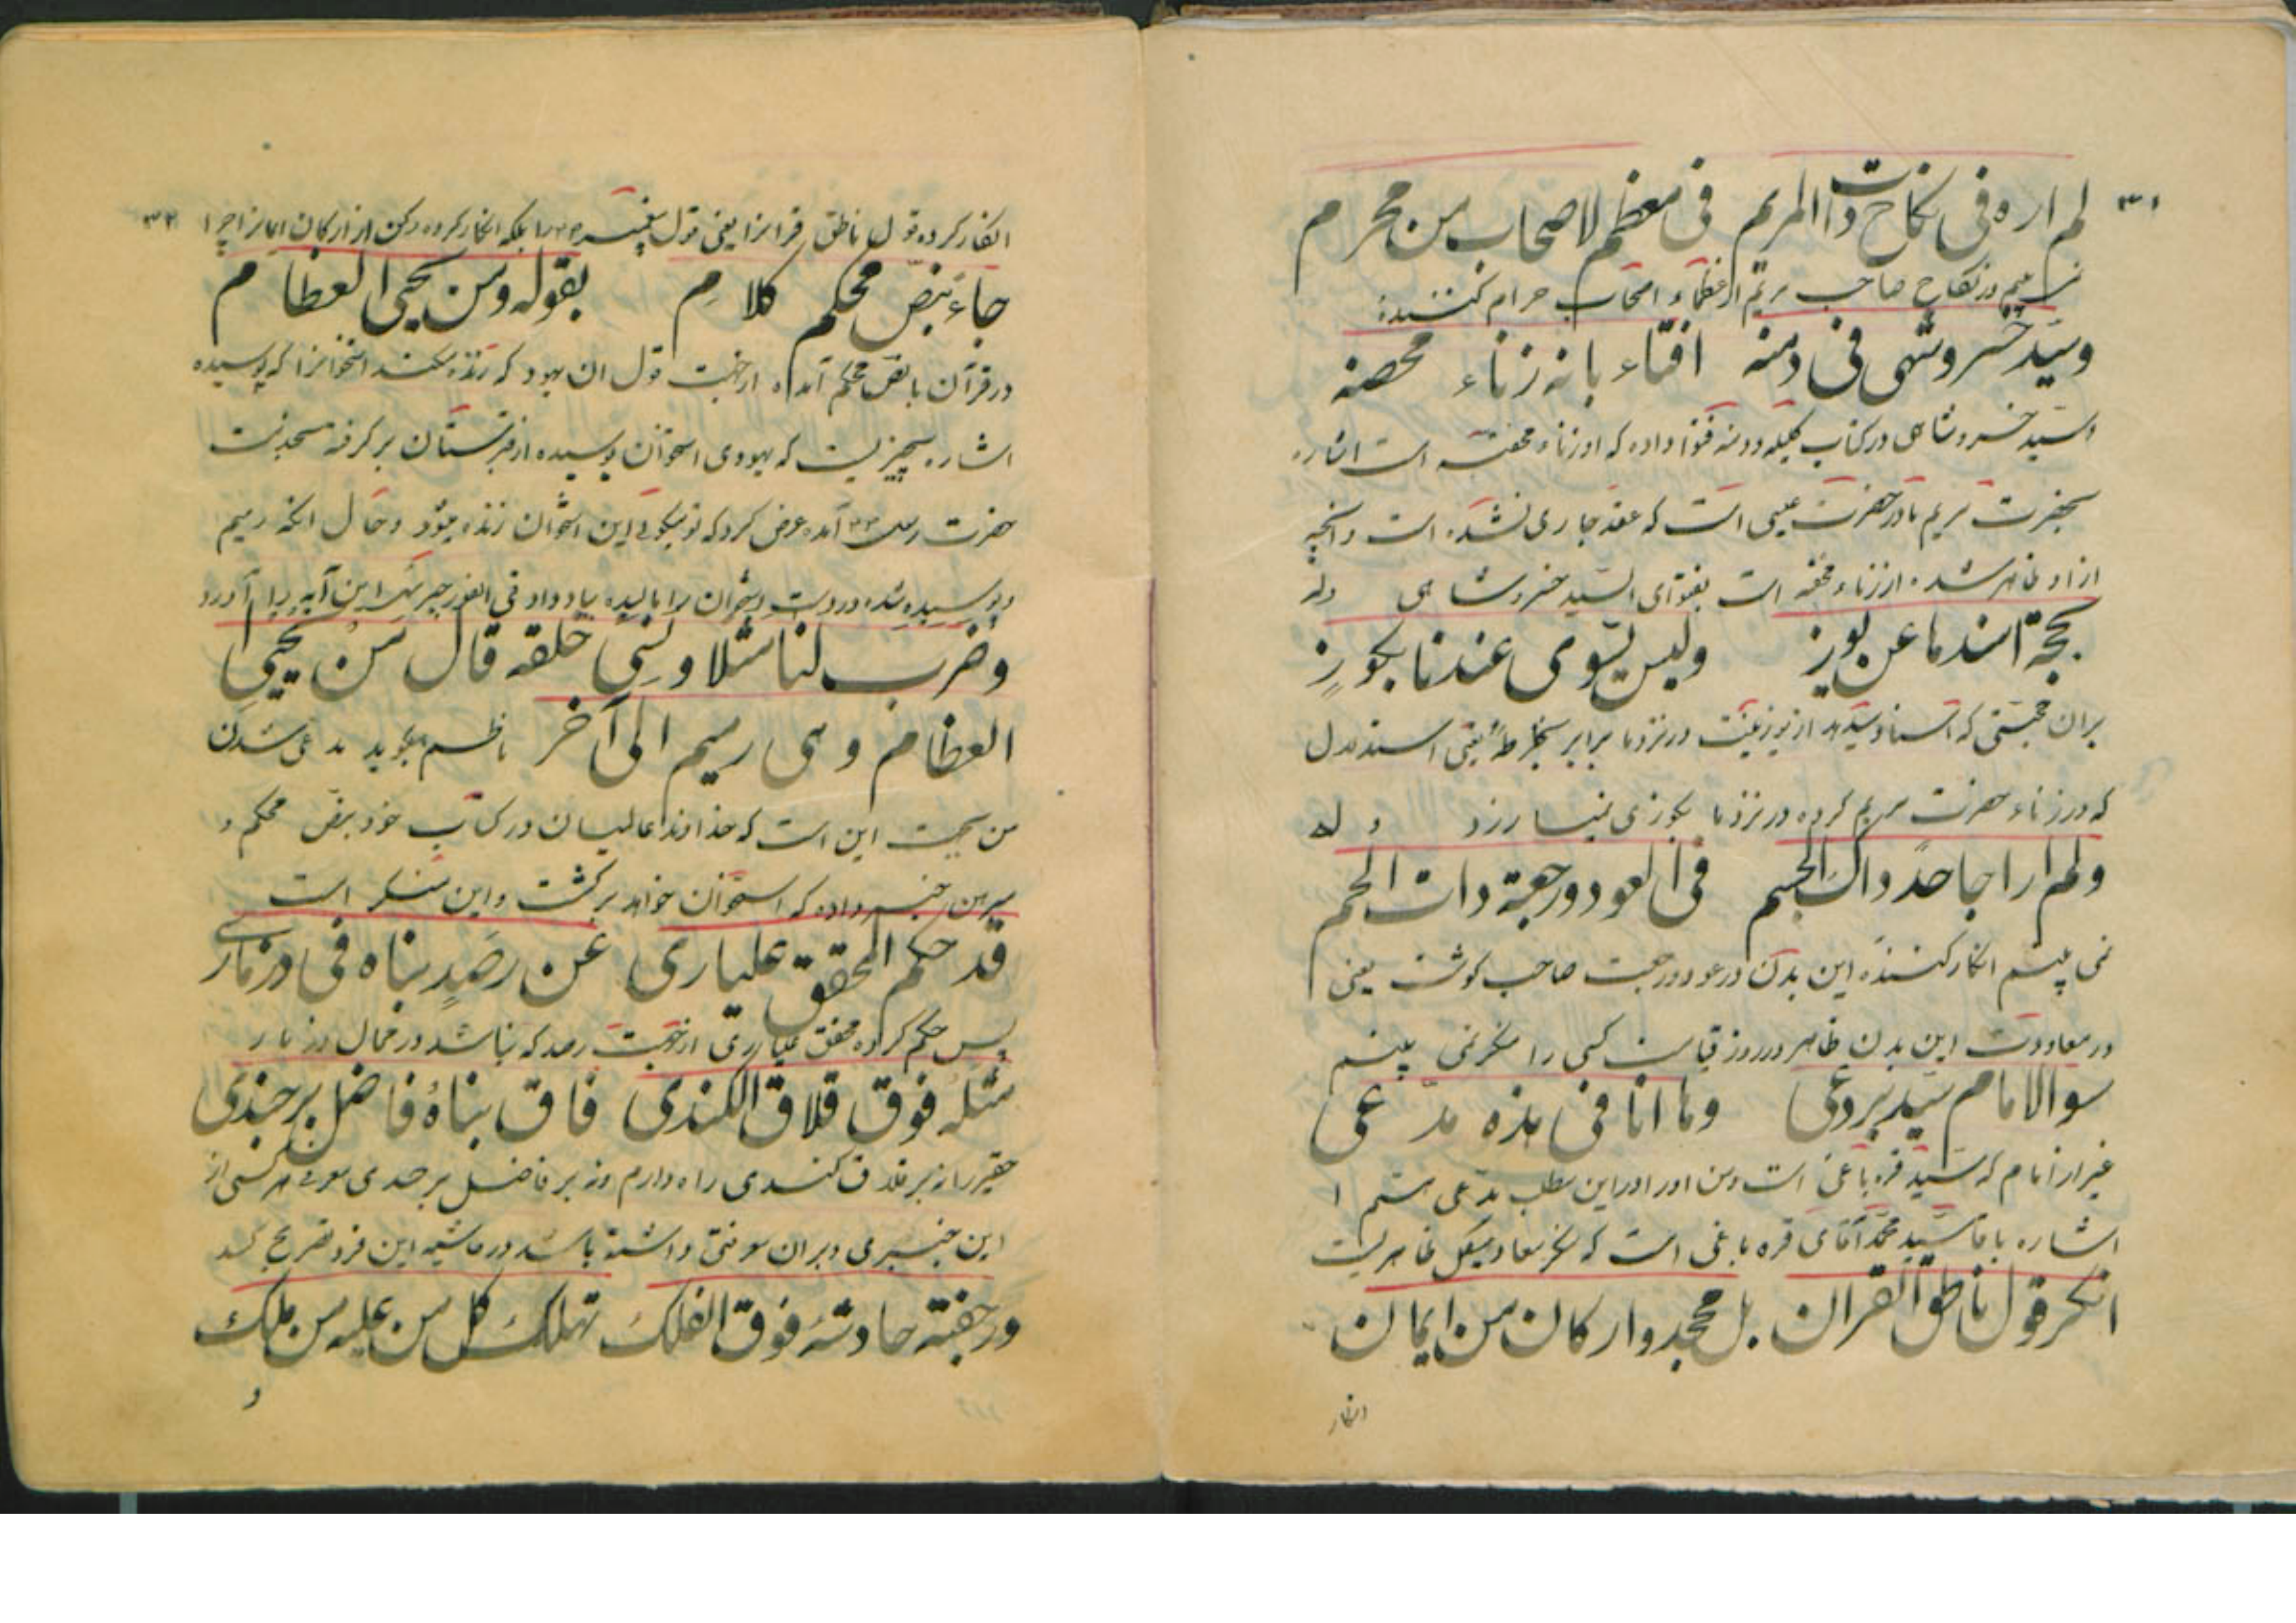 ۳۱
لم اره فی نکاح ذات المریم فی معظم الاصحاب من محرم
در نکاح صاحب مریم از عظماء اصحاب حرام کننده
وسید خسروشهی فی دمنه افتاء بانه زناء محصنه
السید خسروشاهی در کتاب کلیله ودمنه فتوا داده که او زناء محصنه است اشاره
بحضرت مریم مادر حضرت عیسی است که عقد جاری نشده است وانچه
از او ظاهر شده از زناء محصنه است بفتوای السید خسروشاهی وله
بحجة اسندها عن یوز ولیس یسوی عندنا بکوز
بران حجتی که اسناد میدهد از یوز نیست در نزد ما برابر یعنی استدلال
که در زناء حضرت مریم کرده در نزد ما بکوزی نمیارزد وله
ولم ارا جاحد ذاک الجسم فی العود ورجعة ذات اللحم
نمی بینم انکار کننده این بدن در عود ورجعت صاحب گوشت یعنی
در معاودت این بدن ظاهر در روز قیامت کسی را منکر نمی بینم
سوالامام سید بردعی وما انا فی هذه مدعی
غیر از امام که سید قره باغی است ومن او را در این مطلب مدعی هستم
اشاره باقا سید محمد آقای قره باغی است که منکر معاد هیکل ظاهریست
انکر قول ناطق القران بل مجحد وارکان من ایمان
انکار
۳۲
انکار کرده قول ناطق قرانرا یعنی قول پیغمبر را بلکه انکار کرده رکن از ارکان ایمانرا چرا
جاء بنص محکم کلام بقوله ومن یحیی العظام
در قرآن با نص محکم آمده قول ان یهود که زنده میکند استخوانرا که پوسیده
اشاره بچیزیست که یهودی استخوان پوسیده از قبرستان برگرفته بخدمت
حضرت آمده عرض کرد که تو میگوئی این استخوان زنده میشود وحال انکه رمیم
وپوسیده شده در دست استخوان را مالیده بباد داد فی الفور جبرئیل این آیه را آورد
وضرب لنا مثلا ونسی خلقه قال من یحیی
العظام وهی رمیم الی آخر ناظم میگوید مدعی شدن
من بجهت این است که خداوند عالمیان در کتاب خود بنص محکم و
مبرهن خبر داده که استخوان خواهد برگشت واین منکر است
قد حکم المحقق علیاری عن رصد بناه فی وزناری
پس حکم کرده محقق علیاری رصد که بنا شد در
مثله فوق قلاق الکندی فاق بناؤه فاضل برجندی
حقیر را نه بر قلاق کندی راه دارم ونه بر فاضل برجندی هر کسی از
این خبری وبران وقوفی داشته باشد در حاشیه این فرد تصریح کند
ورجفته حادثه فوق الفلک تهلک کل من علیه من ملک
و